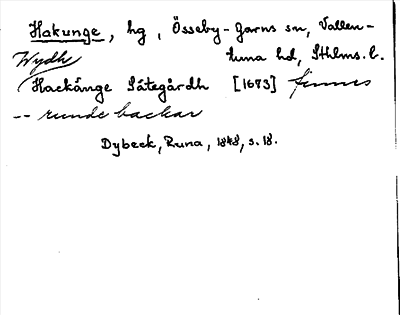 Hakunge, hg, Össeby-Garns sn, Vallen-
tuna hd, Sthlms. l.
Wydh
Hackänge Sätegårdh [1673] finnes
-- runde backar
Dybeck, Runa, 1848, s. 18.